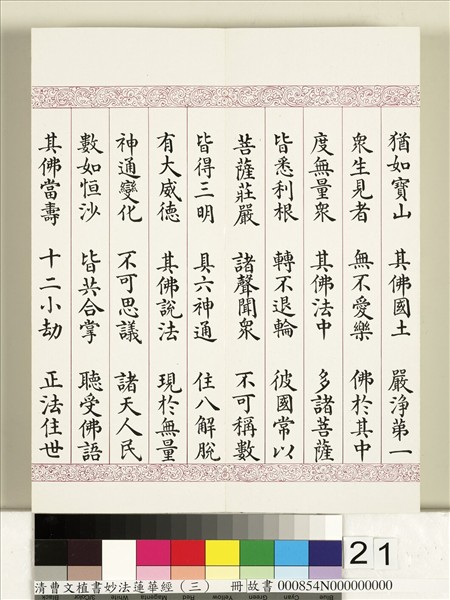 猶如寶山 其佛國土 嚴淨第一
衆生見者 無不愛樂 佛於其中
度無量衆 其佛法中 多諸菩薩
皆悉利根 轉不退輪 彼國常以
菩薩莊嚴 諸聲聞衆 不可稱數
皆得三明 具六神通 住八解脫
有大威德 其佛說法 現於無量
神通變化 不可思議 諸天人民
數如恒沙 皆共合掌 聽受佛語
其佛當壽 十二小劫 正法住世
21
清曹文植書妙法蓮華經（三） 冊 故書 000854N000000000